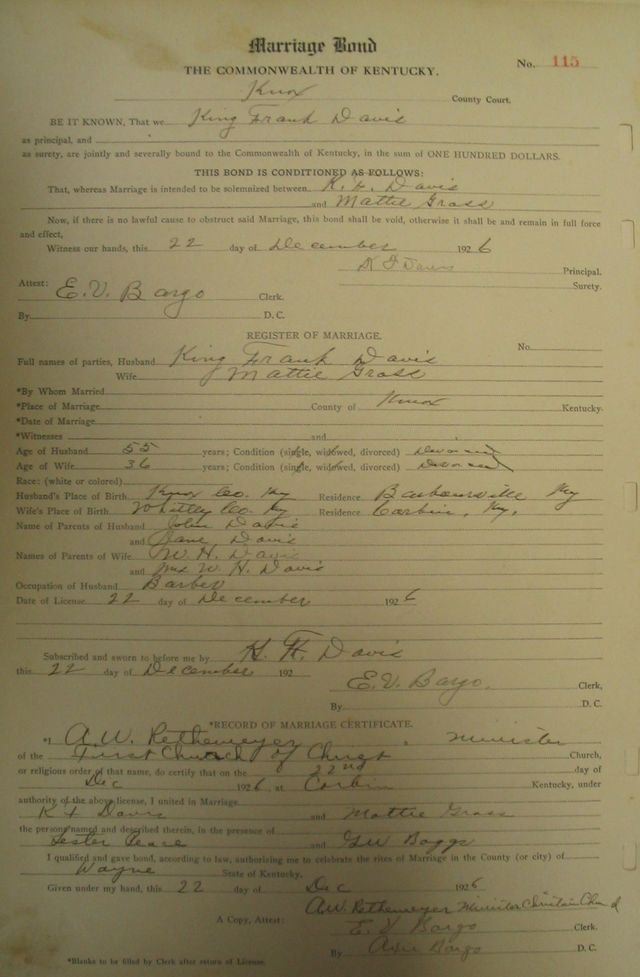 Marriage Bond
THE COMMONWEALTH OF KENTUCKY.
No. 115
Knox County Court.
BE IT KNOWN, That we King Frank Davis
as principal, and
as surety, are jointly and severally bound to the Commonwealth of Kentucky, in the sum of ONE HUNDRED DOLLARS.
THIS BOND IS CONDITIONED AS FOLLOWS:
That, whereas Marriage is intended to be solemnized between K. F. Davis
and Mattie Grass
Now, if there is no lawful cause to obstruct said Marriage, this bond shall be void, otherwise it shall be and remain in full force
and effect,
Witness our hands, this 22 day of December 1926
K F Davis Principal.
Surety.
Attest: E. V. Bargo Clerk.
By D. C.
REGISTER OF MARRIAGE.
No.
Full names of parties, Husband King Frank Davis
Wife Mattie Grass
*By Whom Married
*Place of Marriage County of Knox Kentucky.
*Date of Marriage
*Witnesses and
Age of Husband 55 years; Condition (single, widowed, divorced) Divorced
Age of Wife 36 years; Condition (single, widowed, divorced) Divorced
Race: (white or colored)
Husband's Place of Birth Knox Co. Ky Residence Barbourville Ky
Wife's Place of Birth Whitley Co. Ky Residence Corbin, Ky.
Name of Parents of Husband John Davis
and Jane Davis
Names of Parents of Wife W. H. Davis
and Mrs W. H. Davis
Occupation of Husband Barber
Date of License 22 day of December 1926
Subscribed and sworn to before me by K. F. Davis
this 22 day of December 192
E. V. Bargo. Clerk,
By D. C.
*RECORD OF MARRIAGE CERTIFICATE.
*I A. W. Rethemeyer, Minister
of the First Church of Christ Church,
or religious order of that name, do certify that on the 22nd day of
Dec 1926, at Corbin Kentucky, under
authority of the above license, I united in Marriage
K F Davis and Mattie Grass
the persons named and described therein, in the presence of
Lester Pearce and G W Boggs
I qualified and gave bond, according to law, authorizing me to celebrate the rites of Marriage in the County (or city) of
Wayne State of Kentucky.
Given under my hand, this 22 day of Dec 1926
A. W. Rethemeyer Minister Christain Church
A Copy, Attest: E. V Bargo Clerk.
By Bargo D. C.
*Blanks to be filled by Clerk after return of License.